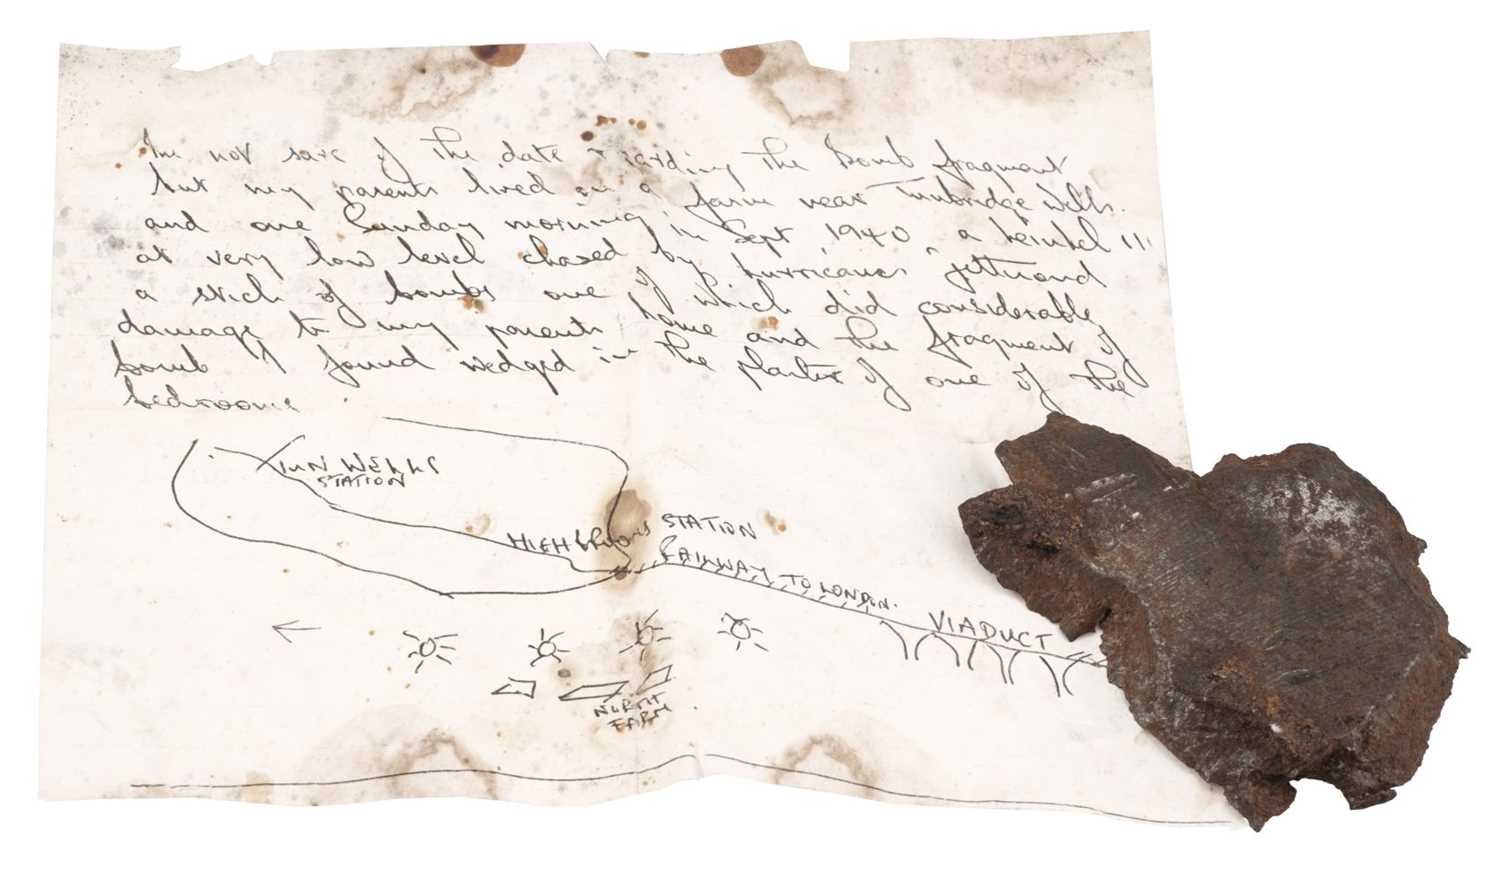 I'm not sure of the date regarding the Bomb fragment
but my parents lived on a farm near Tunbridge Wells.
and one Sunday morning, in Sept, 1940, a heinkel 111
at very low level chased by hurricanes jettisond
a stick of bombs one of which did considerably
damage to my parents home and the fragment of
bomb I found wedged in the plaster of one of the
bedrooms
TUN WELLS
STATION
HIGH BROOMS STATION
RAILWAY TO LONDON.
VIADUCT
NORTH
FARM